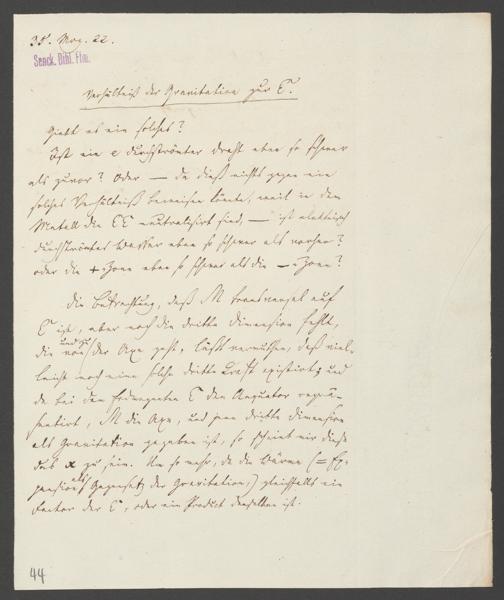 38. Nov. 22.
Senck. Bibl. Ffm.
Verhältniß der Gravitation zur E.
Giebt es ein solches?
Ist ein e durchströmter Draht eben so schwer
als zuvor? Oder — da dieß nichts gegen ein
solches Verhältniß beweisen könnte, weil in dem
Metall die EE neutralisirt sind, — ist elektrisch
durchströmtes Wasser eben so schwer als vorher?
oder die + Zone eben so schwer als die – Zone?
Die Betrachtung, daß M transversal auf
E ist, aber noch die dritte Dimension fehlt,
die von und zu der Axe geht, läßt vermuthen, daß viel-
leicht noch eine solche dritte Kraft existirt; und
da bei dem Erdmagneten E den Aequator reprä-
sentirt, M die Axe, und jene dritte Dimension
als Gravitation gegeben ist, so scheint mir diese
das x zu sein. Um so mehr, da die Wärme (= Ex-
pansion als Gegensatz der Gravitation,) gleichfalls ein
Factor der E, oder ein Product derselben ist.
44